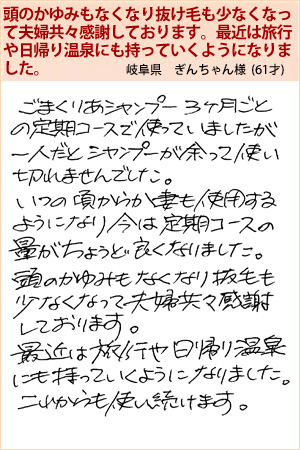 頭のかゆみもなくなり抜け毛も少なくなっ
て夫婦共々感謝しております。最近は旅行
や日帰り温泉にも持っていくようになりま
した。
岐阜県　ぎんちゃん様 (61才)
ごまくりあシャンプー 3ヶ月ごと
の定期コースで使っていましたが
一人だとシャンプーが余って使い
切れませんでした。
いつの頃からか妻も使用する
ようになり今は定期コースの
量がちょうど良くなりました。
頭のかゆみもなくなり抜毛も
少なくなって夫婦共々感謝
しております。
最近は旅行や日帰り温泉
にも持っていくようになりました。
これからも使い続けます。